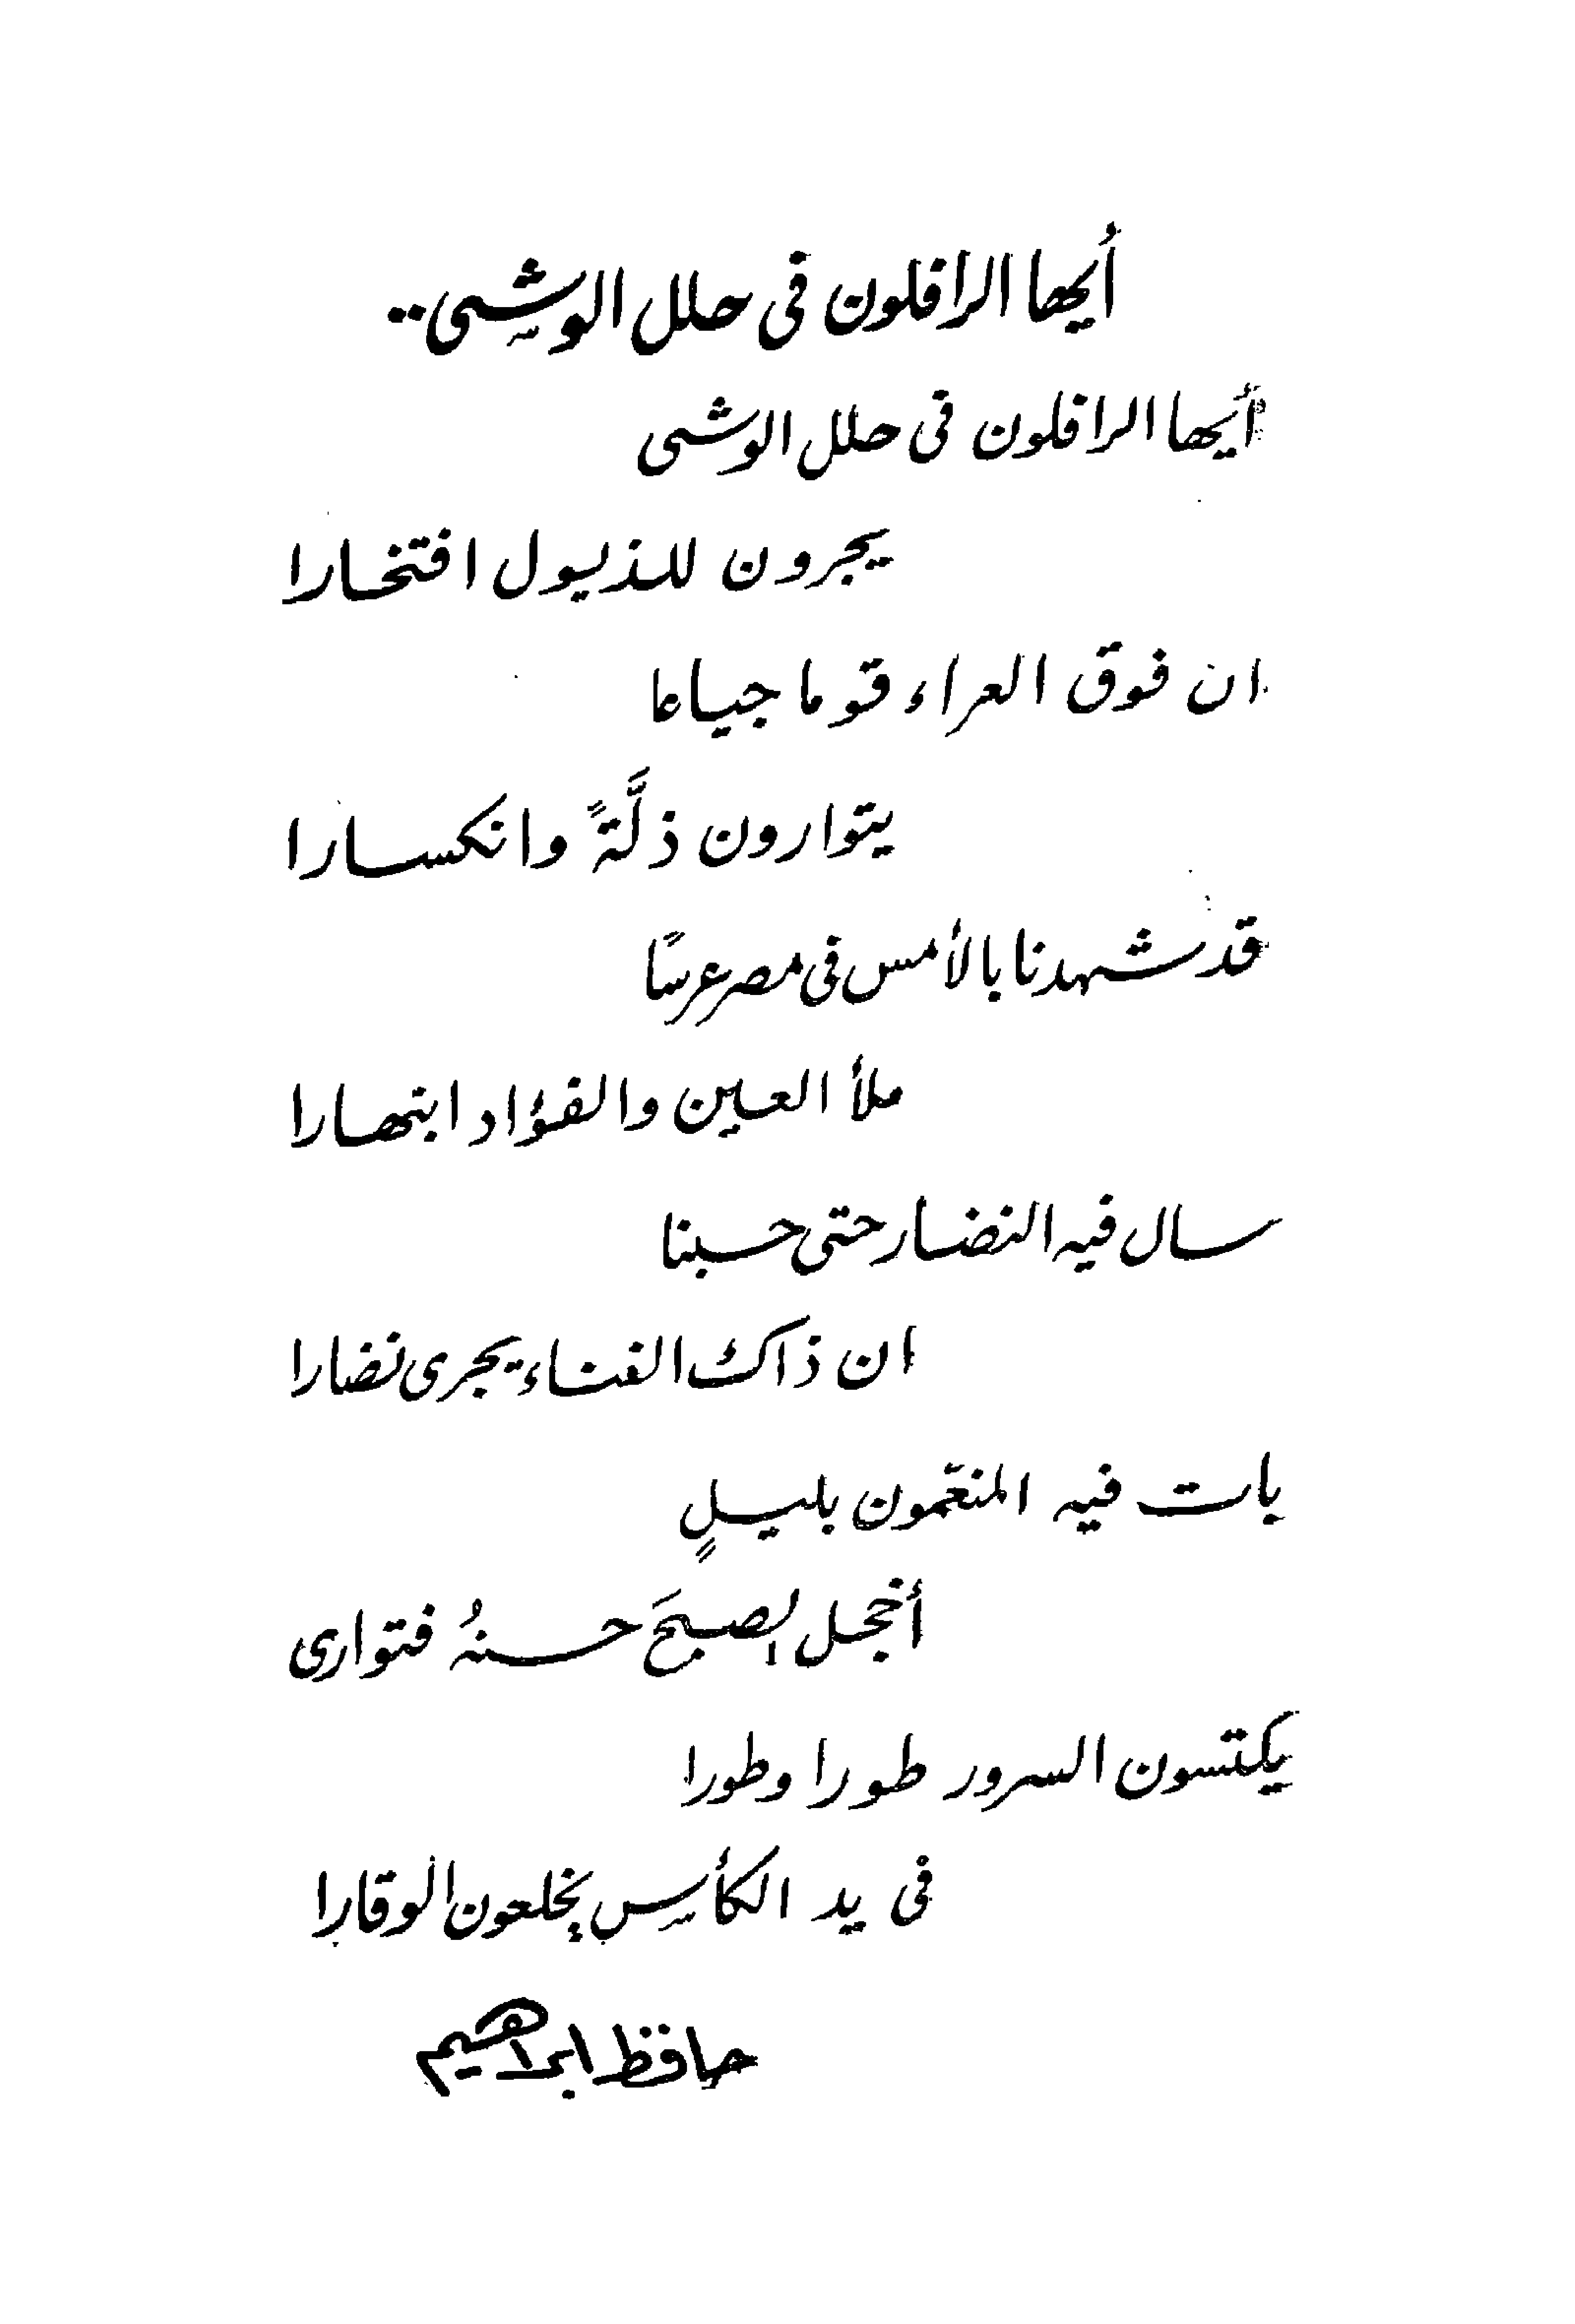 أيها الرافلون فى حلل الوشى..
أيها الرافلون فى حلل الوشى
يجرون للذيول افتخارا
ان فوق العراء قوما جياعا
يتوارون ذلَّةً وانكسارا
قد شهدنا بالأمس فى مصر عرسًا
ملأ العين والفؤاد ابتهارا
سال فيه النضار حتى حسبنا
ان ذاك الفناء يجرى نضارا
بات فيه المنعّمون بليلٍ
أخجل الصبحَ حسنهُ فتوارى
يكتسون السرور طورا وطورا
فى يد الكأس يخلعون الوقارا
حافظ ابراهيم